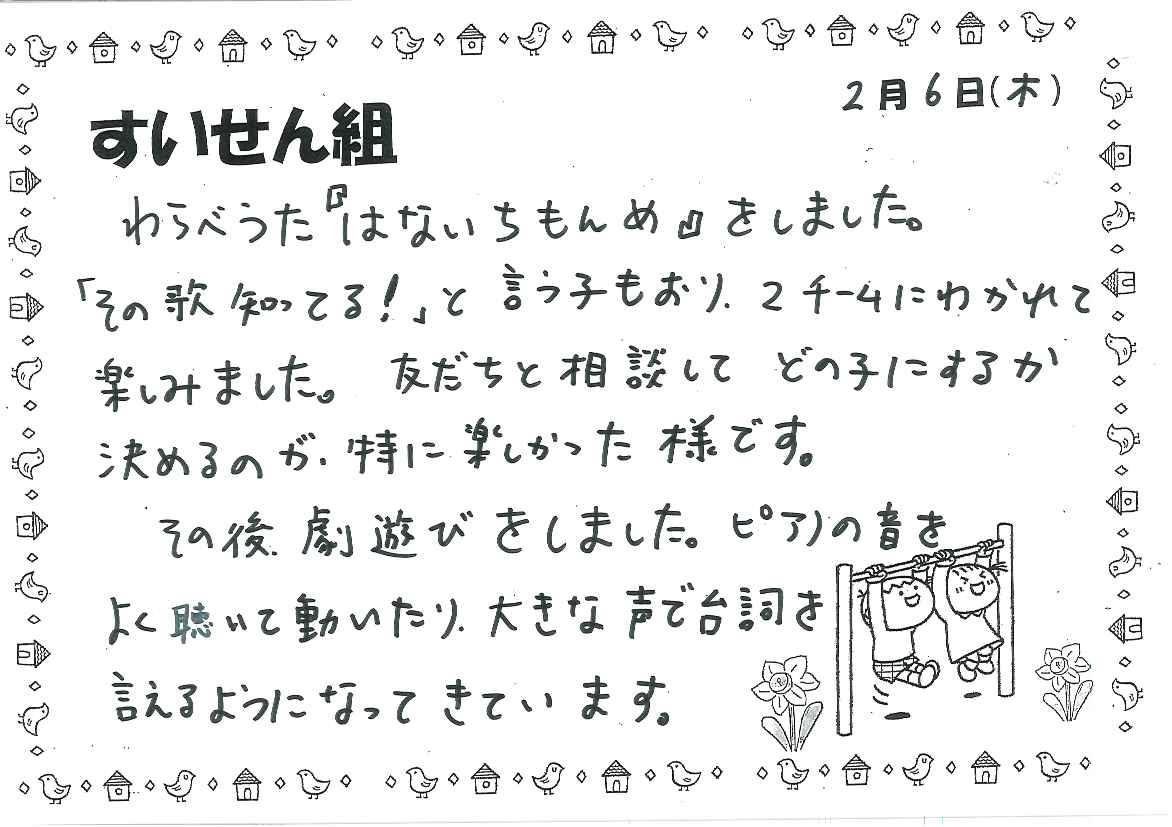 2月6日(木)
すいせん組
わらべうた『はないちもんめ』をしました。
「その歌知ってる!」と言う子もおり、2チームにわかれて
楽しみました。友だちと相談してどの子にするか
決めるのが、特に楽しかった様です。
その後、劇遊びをしました。ピアノの音を
よく聴いて動いたり、大きな声で台詞を
言えるようになってきています。